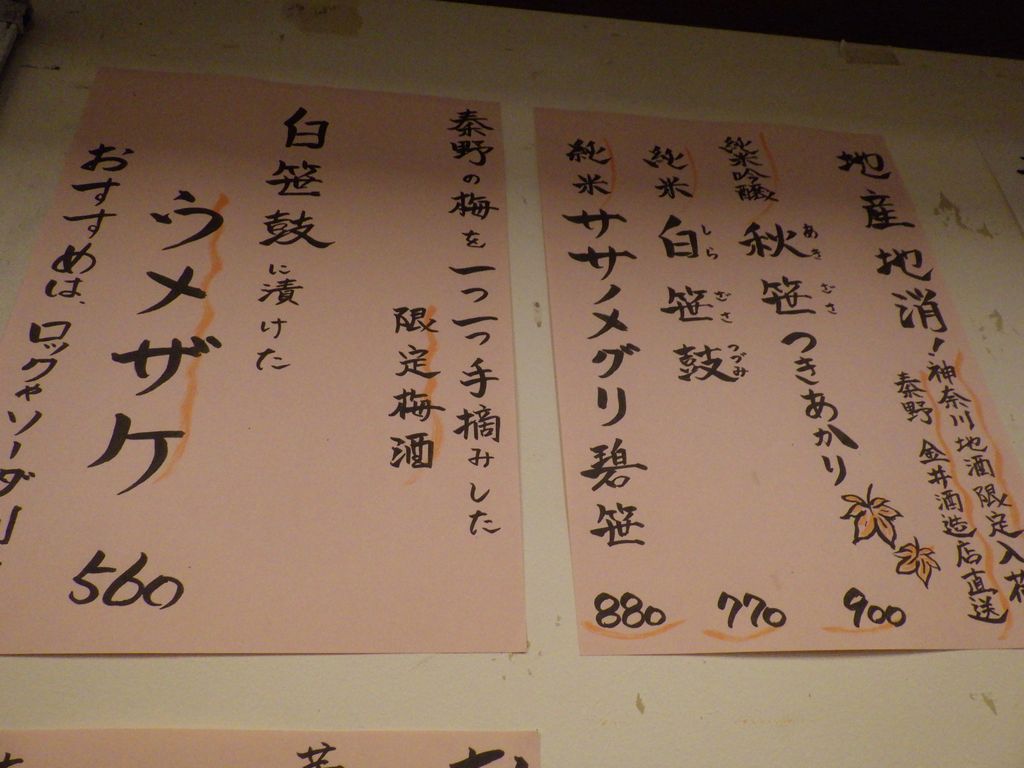 地産地消!
神奈川地酒限定入荷
秦野 金井酒造店直送
純米吟醸 秋笹つきあかり 900
あき むさ
純米 白笹鼓 770
しら むさ つづみ
純米 ササノメグリ碧笹 880
秦野の梅を一つ一つ手摘みした
限定梅酒
白笹鼓に漬けた
ウメザケ 560
おすすめは、ロックやソーダ